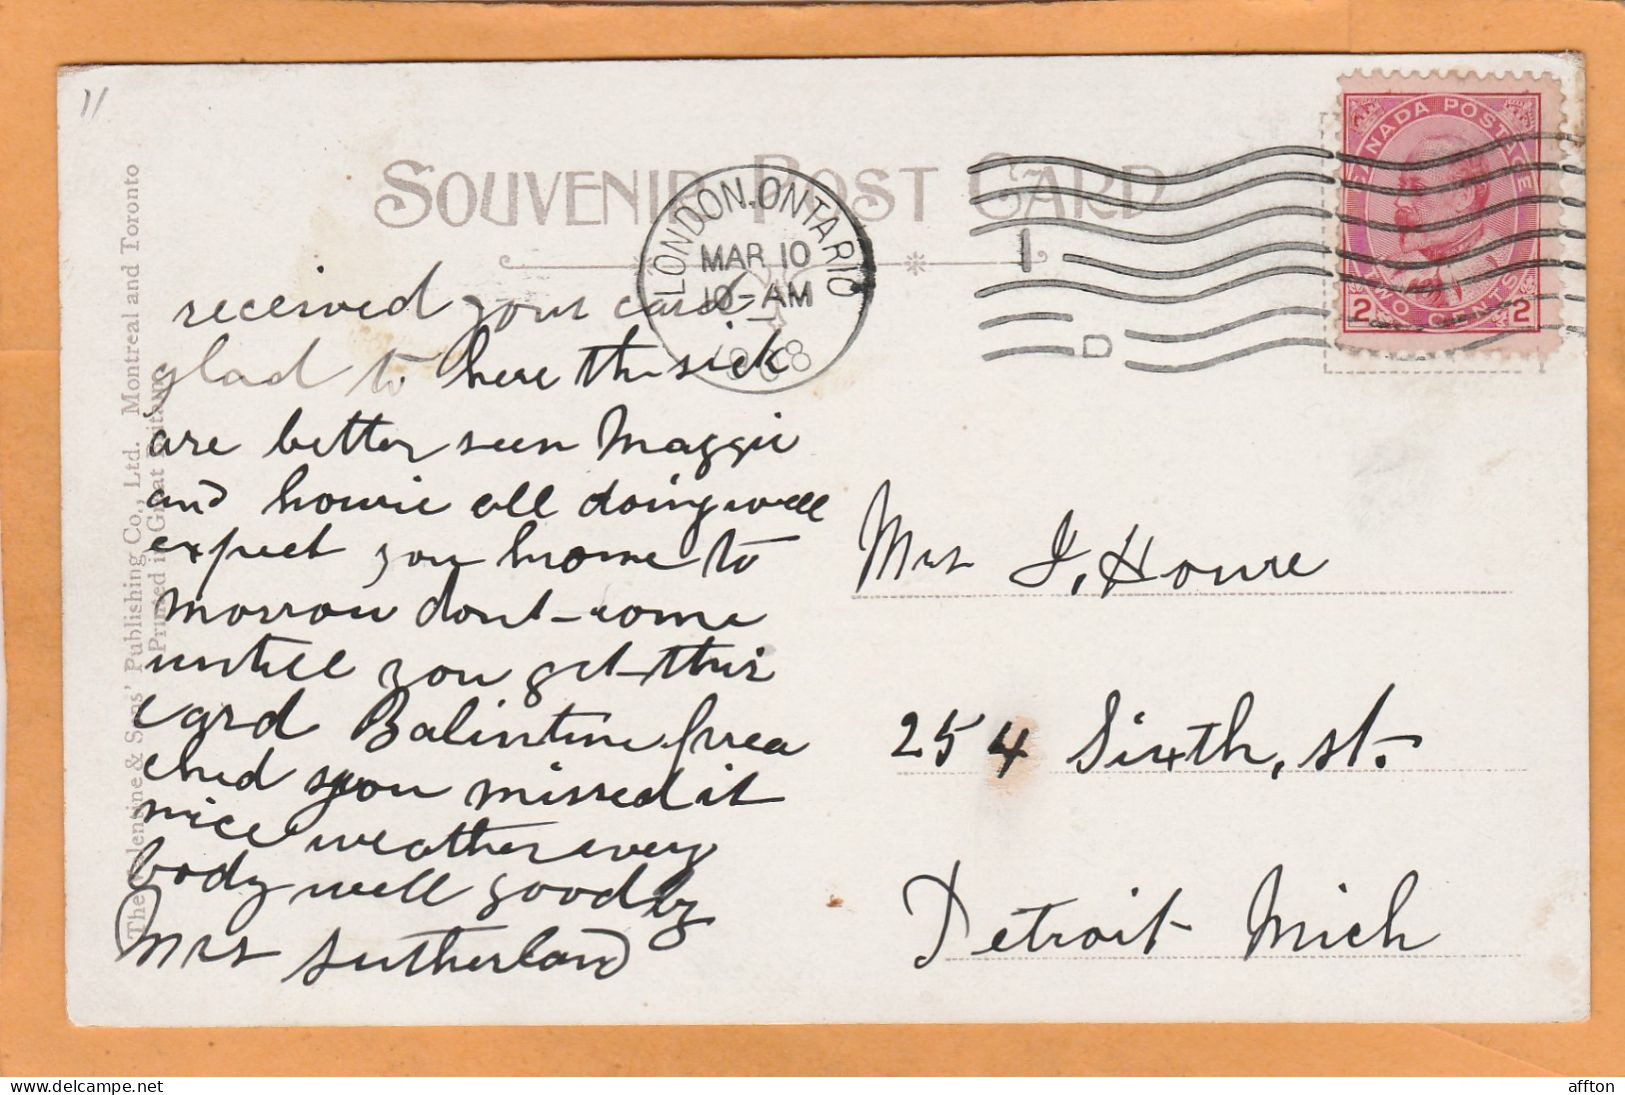 11
SOUVENIR POST CARD
CANADA POSTAGE
2 TWO CENTS 2
LONDON. ONTARIO
MAR 10
10-AM
1908
1
D
The Valentine & Sons' Publishing Co., Ltd. Montreal and Toronto
Printed in Great Britain.
received your card
glad to here the sick
are better seen Maggie
and howie all doing well
expect you home to
morrow dont come
untill you get this
card Balintine
you missed it
nice weather every
body well good by
Mrs Sutherland
Mrs J, Howre
254 Sixth, st.
Detroit Mich
affton